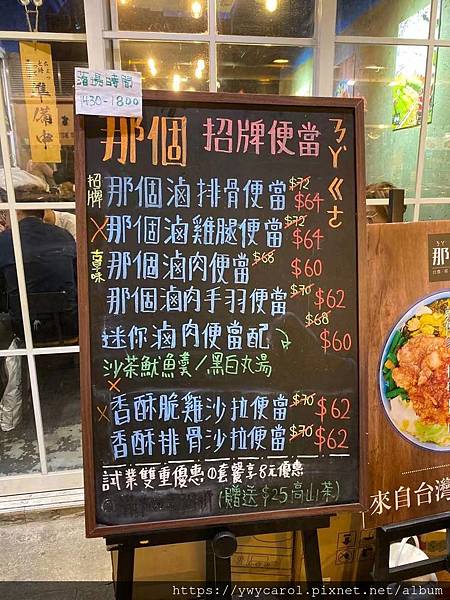 落場時間
1430-1800
準備中
那個 招牌便當
ㄋㄚˋㄍㄜ
招牌 那個滷排骨便當 $72 $64
X 那個滷雞腿便當 $72 $64
古早味 那個滷肉便當 $68 $60
那個滷肉手羽便當 $70 $62
迷你滷肉便當配 $68 $60
沙茶魷魚羹/黑白丸湯
X
X 香酥脆雞沙拉便當 $70 $62
香酥排骨沙拉便當 $70 $62
試業雙重優惠 套餐享8元優惠
(贈送$25高山茶)
那
來自台灣
https://ywycarol.pixnet.net/album